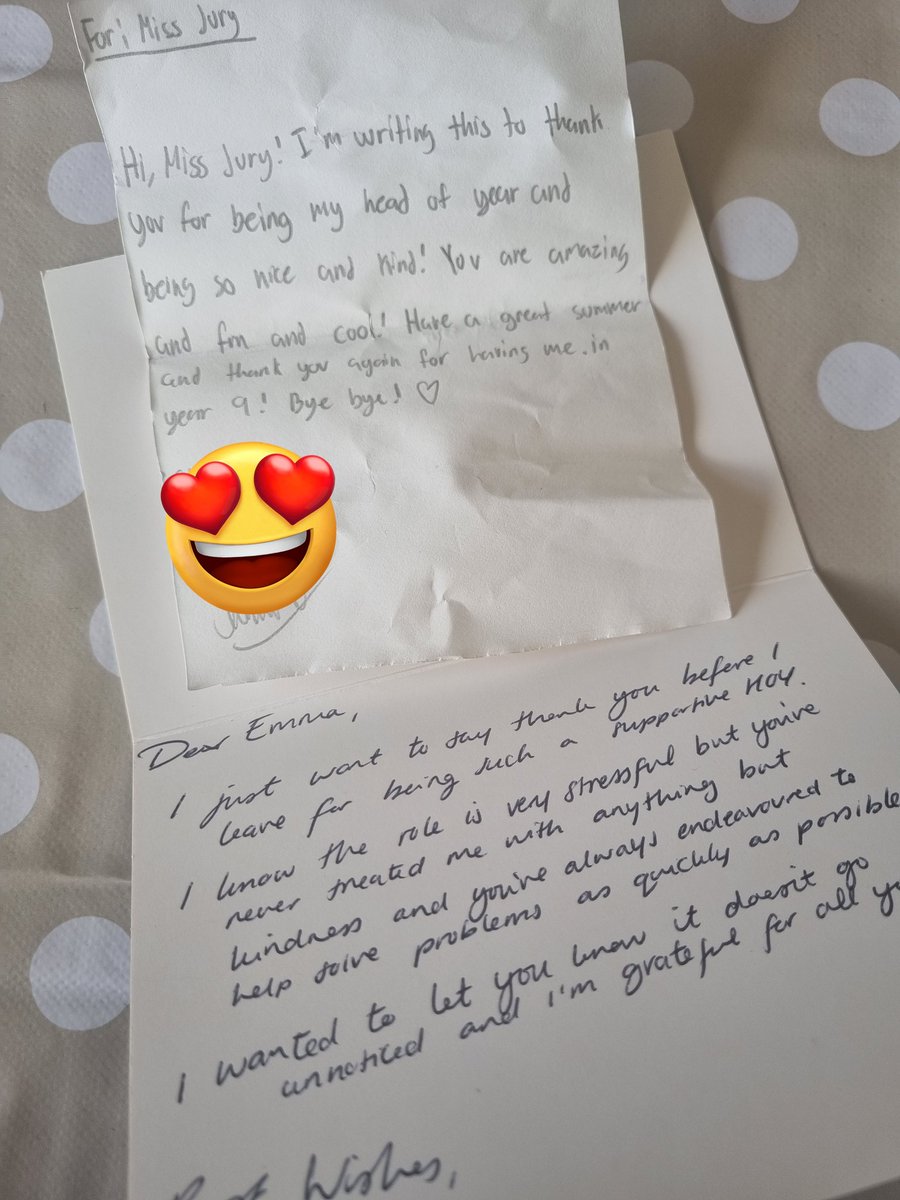 For; Miss Jury
Hi, Miss Jury! I'm writing this to thank
you for being my head of year and
being so nice and kind! You are amazing
and fun and cool! Have a great summer
and thank you again for having me in
year 9! Bye bye! ♡
Dear Emma,
I just want to say thank you before I
leave for being such a supportive HOY.
I know the role is very stressful but you've
never treated me with anything but
kindness and you've always endeavoured to
help solve problems as quickly as possible
I wanted to let you know it doesn't go
unnoticed and I'm grateful for all
Wishes,